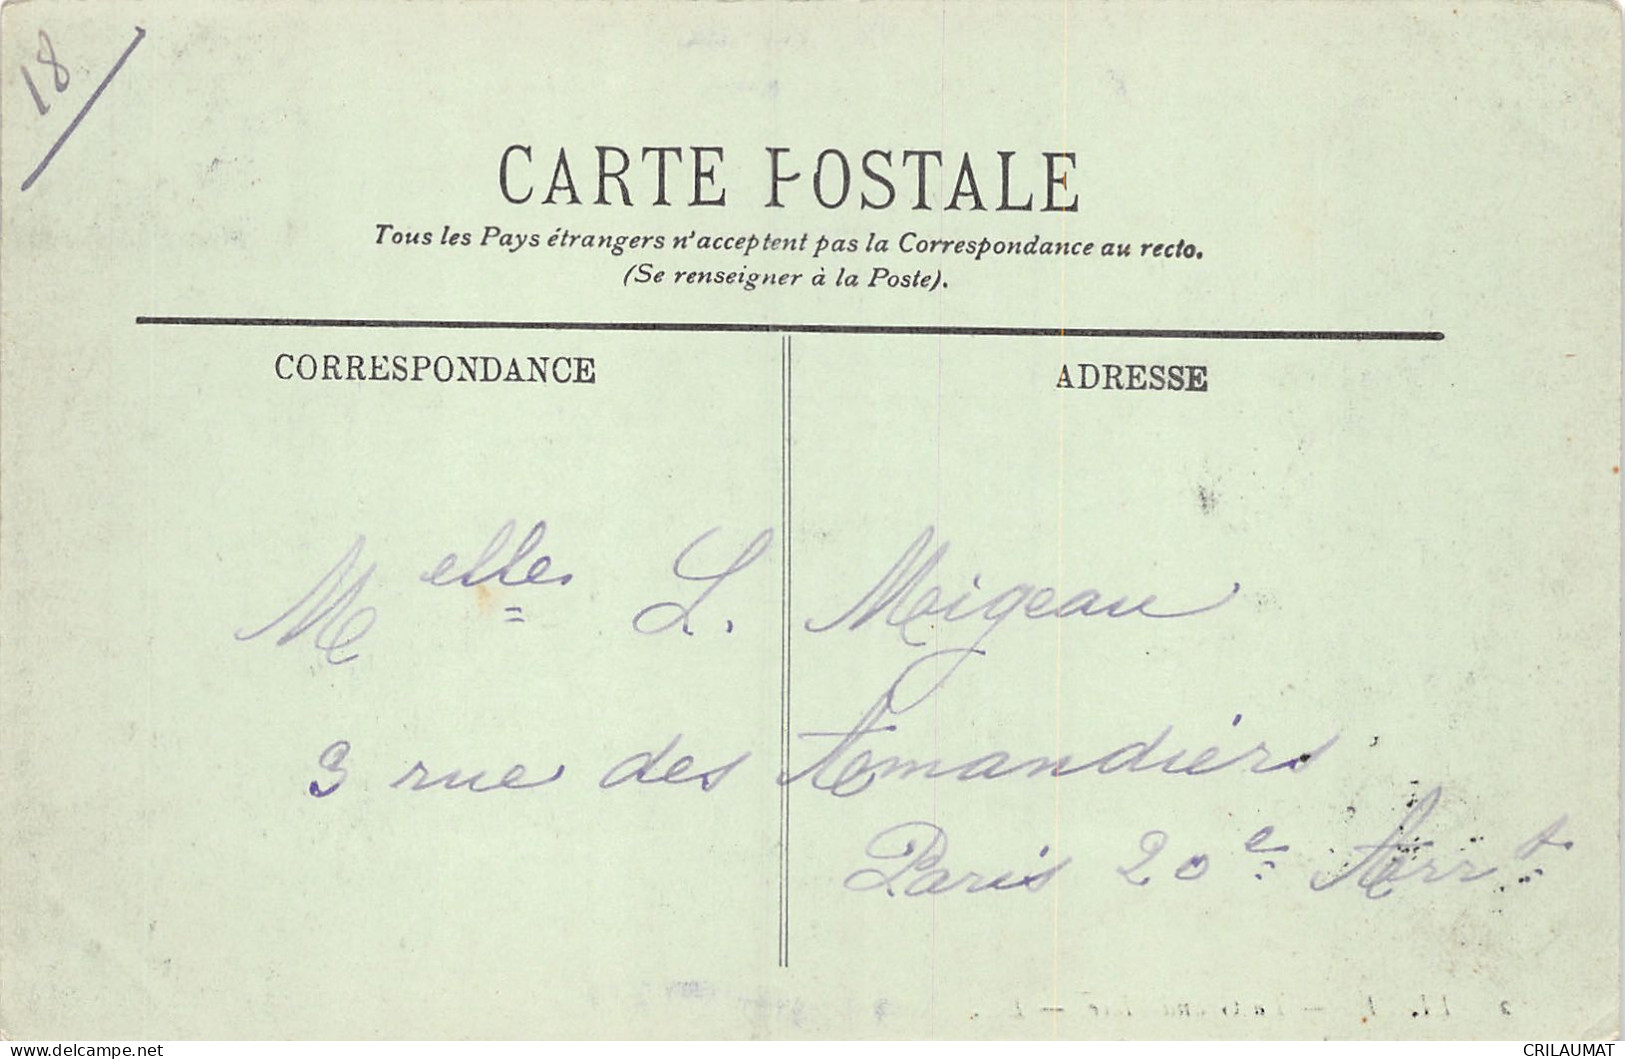 18
CARTE POSTALE
Tous les Pays étrangers n'acceptent pas la Correspondance au recto.
(Se renseigner à la Poste).
CORRESPONDANCE
ADRESSE
Melle L. Migeau
3 rue des Amandiers
Paris 20e Arrt
CRILAUMAT